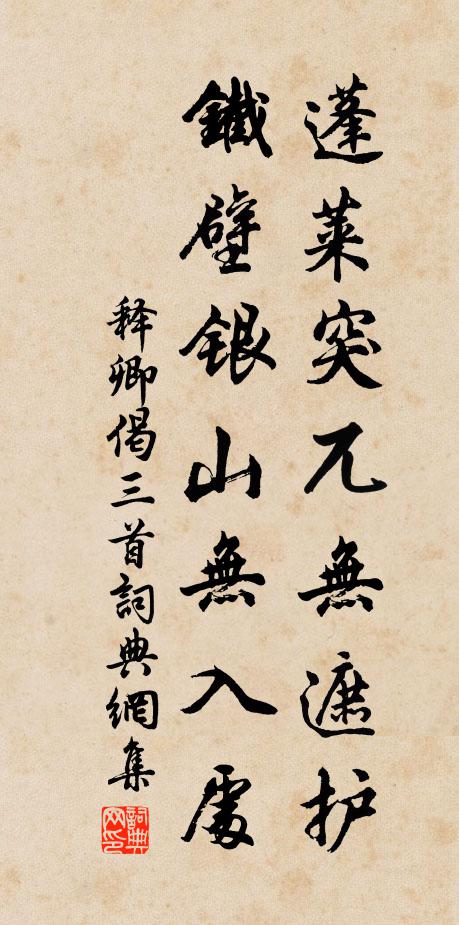 蓬莱突兀無遮护
鐵壁銀山無入處
释卿偈三首詞典網集
詞典网印